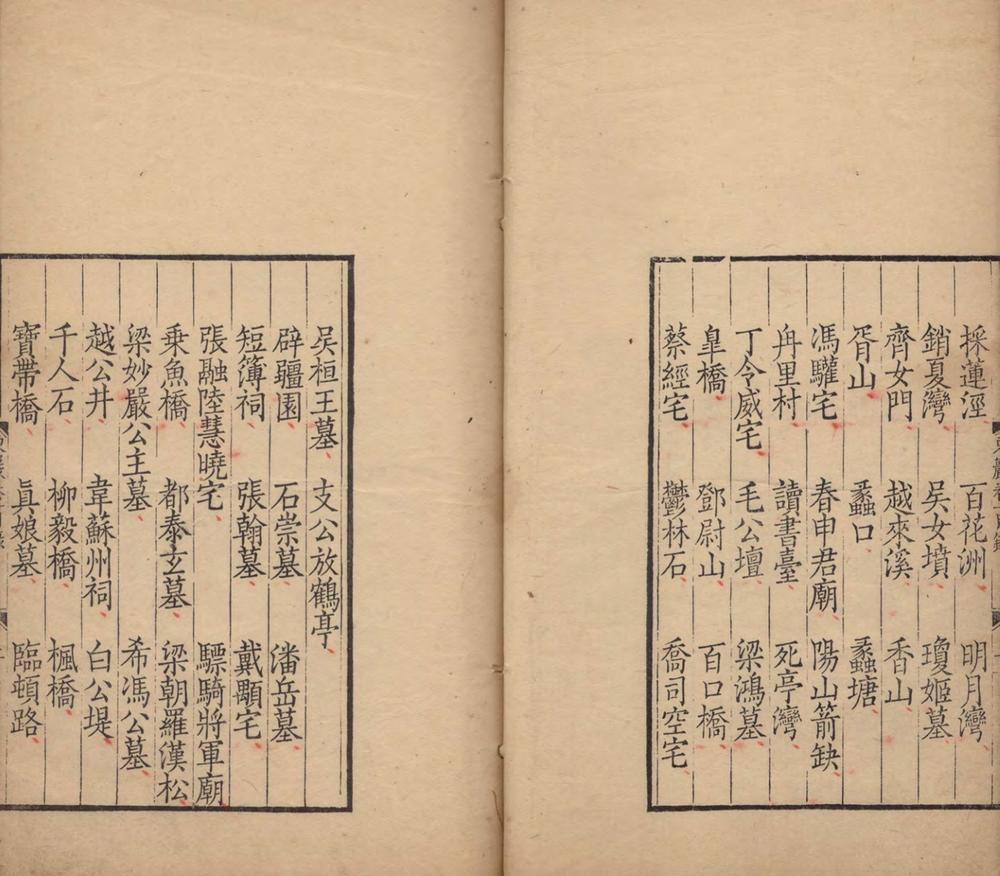 採蓮涇 百花洲 明月灣
銷夏灣 吳女墳 瓊姬墓
齊女門 越來溪 香山
胥山 蠡口 蠡塘
馮驩宅 春申君廟 陽山箭缺
冉里村 讀書臺 死亭灣
丁令威宅 毛公壇 梁鴻墓
臯橋 鄧尉山 百口橋
蔡經宅 鬱林石 喬司空宅
吳桓王墓 支公放鶴亭
辟疆園 石崇墓 潘岳墓
短簿祠 張翰墓 戴顒宅
張融陸慧曉宅 驃騎將軍廟
乗魚橋 都泰玄墓 梁朝羅漢松
梁妙嚴公主墓 希馮公墓
越公井 韋蘇州祠 白公堤
千人石 柳毅橋 楓橋
寶帶橋 真娘墓 臨頓路